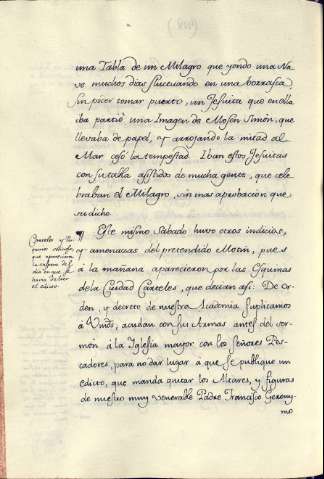 una Tabla de un Milagro que yendo una Na-
ve muchos dias fluctuando en una borrasca,
sin poder tomar puerto, un Jesuita que en ella
iba partió una Imagen de Mosen Simón, que
llevaba de papel, y arrojando la mitad al
Mar cesó la tempestad. Iban estos Jesuitas
con su tabla assistida de mucha gente, que cele-
braban el Milagro, sin mas aprobacion que
su dicho.
Este mismo Sabado huvo otros indicios,
y amenazas del pretendido Motin, pues
á la mañana aparecieron por las Esquinas
de la Ciudad Carteles, que decian assi: De or-
den, y decreto de nuestra Academia suplicamos
á Vmds, acudan con sus Armas antes del ser-
món á la Iglesia mayor con los Señores Pes-
cadores, para no dar lugar á que se publique un
edicto, que manda quitar los Altares, y figuras
de nuestro muy venerable Padre Francisco Gerony-
mo
Carteles
que aparecieron
el edicto.